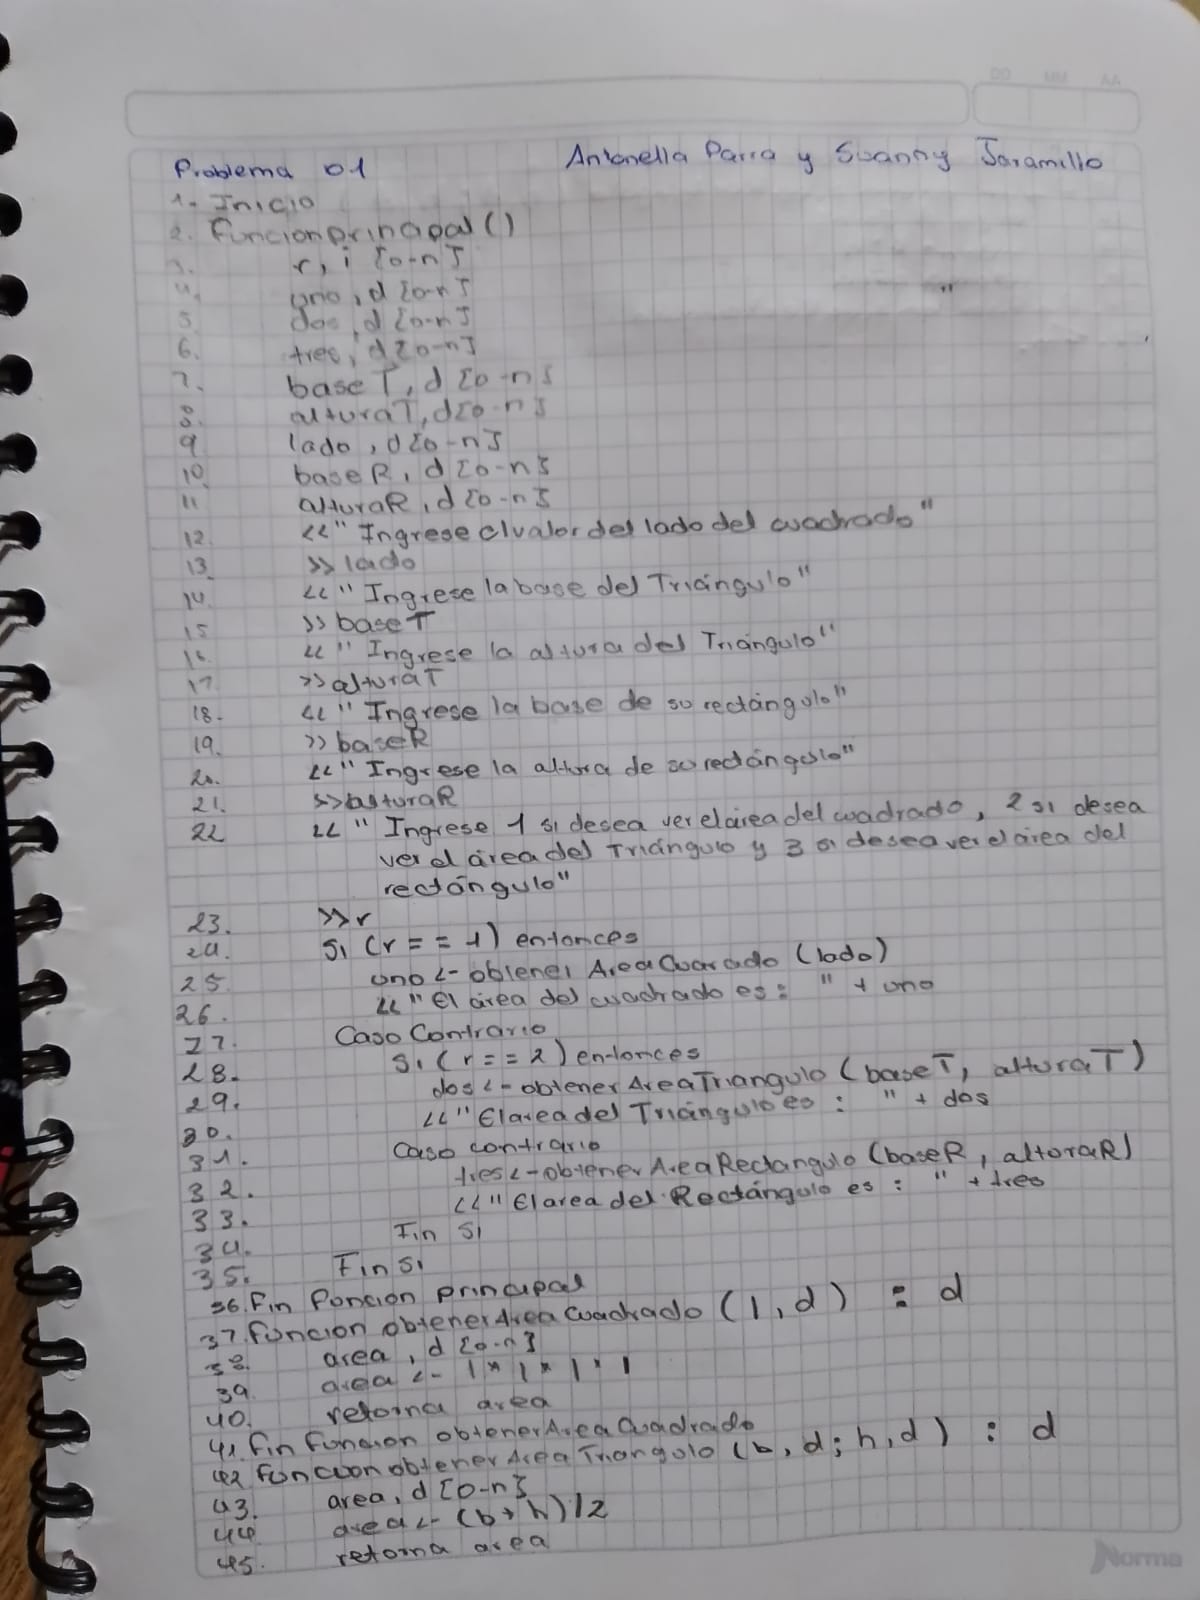 DD MM AA
Problema 01 Antonella Parra y Suanny Jaramillo
1- Inicio
2. Funcion principal ()
3. r, i [0-n]
4. uno, d [0-n]
5. dos, d [0-n]
6. tres, d [0-n]
7. base T, d [0-n]
8. alturaT, d [0-n]
9 lado, d [0-n]
10. base R, d [0-n]
11 alturaR, d [0-n]
12. <<" Ingrese el valor del lado del cuadrado"
13. >> lado
14. <<" Ingrese la base del Triángulo"
15 >> base T
16. <<" Ingrese la altura del Triángulo"
17. >> alturaT
18. <<" Ingrese la base de su rectángulo"
19. >> baseR
20. <<" Ingrese la altura de su rectángulo"
21. >> alturaR
22 <<" Ingrese 1 si desea ver el área del cuadrado, 2 si desea
ver el área del Triángulo y 3 si desea ver el área del
rectángulo"
23. >> r
24. Si (r == 1) entonces
25. uno <- obtener Area Cuarado (lado)
26. <<" El área del cuadrado es: " + uno
27. Caso Contrario
28. Si (r == 2) entonces
29. dos <- obtener Area Triangulo (base T, altura T)
30. <<" El area del Triángulo es: " + dos
31. Caso contrario
32. tres <- obtener Area Rectangulo (baseR, alturaR)
33. <<" El area del Rectángulo es: " + tres
34. Fin Si
35. Fin Si
36. Fin Funcion principal
37. Funcion obtener Area Cuadrado (l, d) : d
38. area, d [0-n]
39. area <- l * l * l * l
40. retorna area
41. Fin Funcion obtener Area Cuadrado
42 Funcion obtener Area Triangulo (b, d; h, d) : d
43. area, d [0-n]
44 area <- (b + h) / 2
45. retorna area
Norma